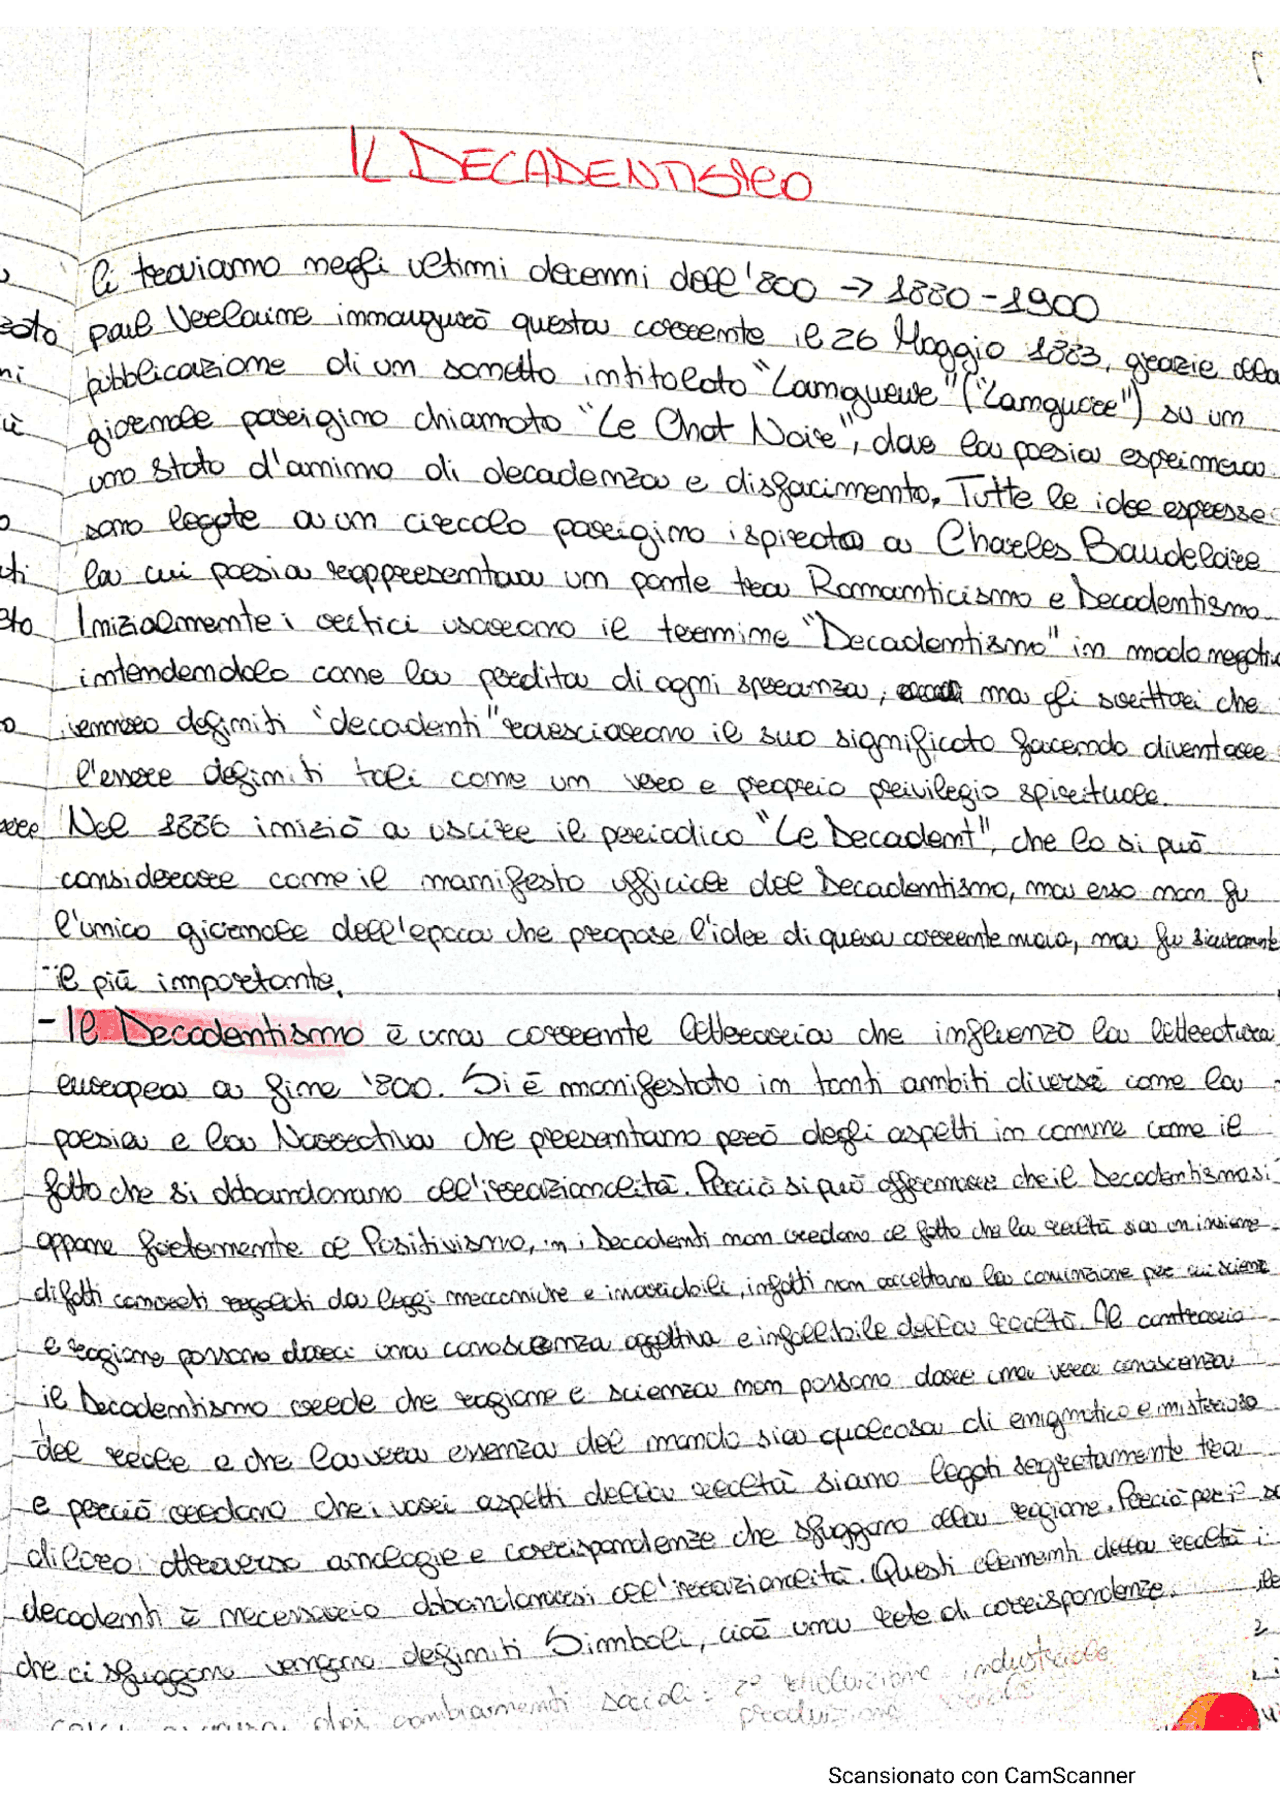 IL DECADENTISMO
Ci troviamo negli ultimi decenni dell'800 → 1880-1900
Paul Verlaine innaugurò questa corrente il 26 Maggio 1883, grazie alla
pubblicazione di un sonetto intitolato "Langueur" ("Languore") su un
giornale parigino chiamato "Le Chat Noir", dove la poesia esprimeva
uno stato d'animo di decadenza e disfacimento. Tutte le idee espresse
sono legate a un circolo parigino ispirato a Charles Baudelaire
la cui poesia rappresentava un ponte tra Romanticismo e Decadentismo.
Inizialmente i critici usarono il termine "Decadentismo" in modo negativo
intendendolo come la perdita di ogni speranza, ma gli scrittori che
vennero definiti "decadenti" rovesciarono il suo significato facendo diventare
l'essere definiti tali come un vero e proprio privilegio spirituale.
Nel 1886 iniziò a uscire il periodico "Le Decadent", che lo si può
considerare come il manifesto ufficiale del Decadentismo, ma esso non fu
l'unico giornale dell'epoca che propose l'idee di quesa corrente nuova, ma fu sicuramente
il più importante.
- Il Decadentismo è una corrente letteraria che influenzo la letteratura
europea a fine '800. Si è manifestato in tanti ambiti diversi come la
poesia e la Narrativa che presentano però degli aspetti in comune come il
fatto che si abbandonano all'irrazionalità. Perciò si può affermare che il Decadentismo si
oppone fortemente al Positivismo, i Decadenti non credono al fatto che la realtà sia un insieme
di fatti concreti regolati da leggi meccaniche e invariabili, infatti non accettano la convinzione per cui scienza
e ragione possono darci una conoscenza oggettiva e infallibile della realtà. Al contrario
il Decadentismo crede che ragione e scienza non possono dare una vera conoscenza
del reale e che la vera essenza del mondo sia qualcosa di enigmatico e misterioso
e perciò credono che i vari aspetti della realtà siano legati segretamente tra
di loro attraverso analogie e corrispondenze che sfuggono alla ragione. Perciò per i
decadenti è necessario abbandonarsi all'irrazionalità. Questi elementi della realtà
che ci sfuggono vengono definiti Simboli, cioè una rete di corrispondenze.
dei cambiamenti sociali: 2ª rivoluzione industriale
produzione
Scansionato con CamScanner